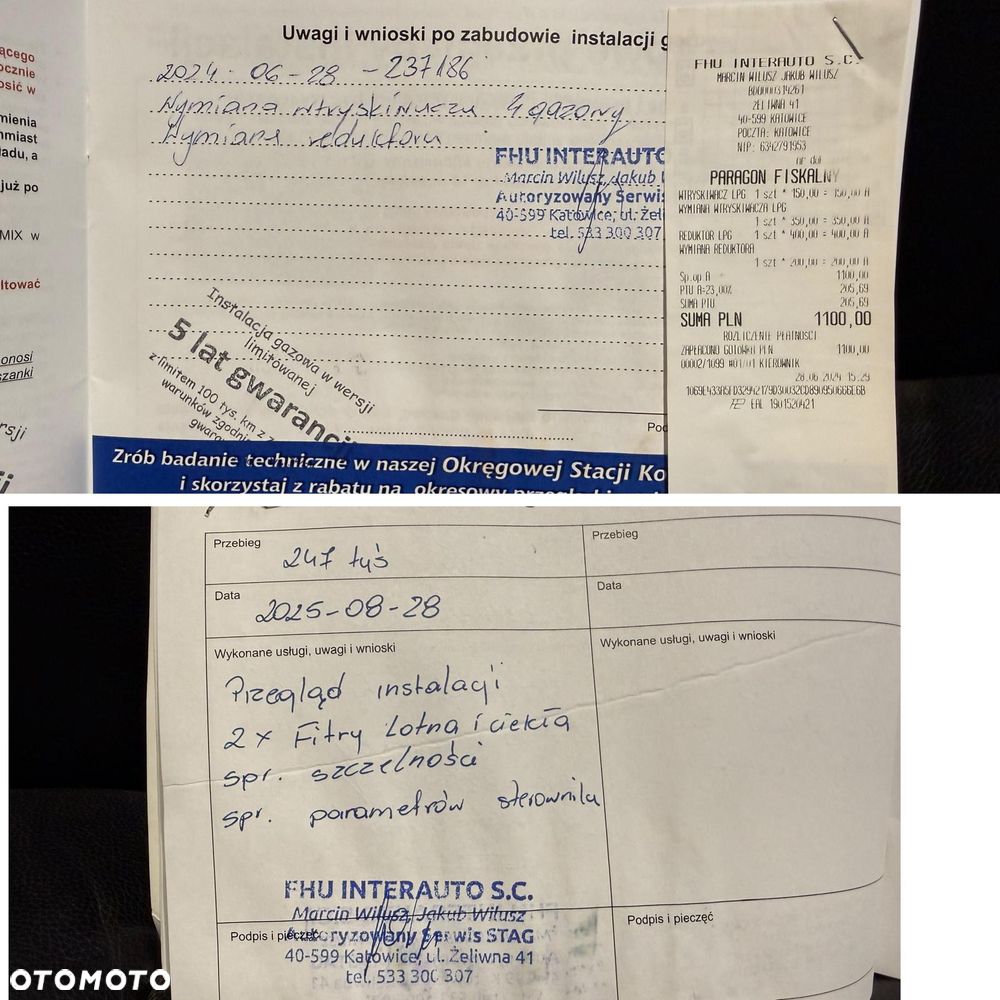 ącego
ocznie
osić w
mienia
hmiast
ładu, a
już po
MIX w
ltować
onosi
szanki
rsji
Uwagi i wnioski po zabudowie instalacji g
2024-06-28 - 237186
Wymiana wtryskiwacza 4 gazowy
Wymiana reduktora
FHU INTERAUTO
Marcin Wilusz, Jakub W
Autoryzowany Serwis
40-599 Katowice, ul. Żeli
tel. 533 300 307
Instalacja gazowa w wersji
limitowanej
5 lat gwarancji
z limitem 100 tys. km z z
warunków zgodni
gwara
Pod
Zrób badanie techniczne w naszej Okręgowej Stacji Ko
i skorzystaj z rabatu na okresowy
FHU INTERAUTO S.C.
MARCIN WILUSZ JAKUB WILUSZ
BDO000314261
ŻELIWNA 41
40-599 KATOWICE
POCZTA: KATOWICE
NIP: 6342791953
PARAGON FISKALNY
WTRYSKIWACZ LPG 1 szt * 150,00 = 150,00 A
WYMIANA WTRYSKIWACZA LPG
1 szt * 350,00 = 350,00 A
REDUKTOR LPG 1 szt * 400,00 = 400,00 A
WYMIANA REDUKTORA
1 szt * 200,00 = 200,00 A
Sp.op.A 1100,00
PTU A=23,00% 205,69
SUMA PTU 205,69
SUMA PLN 1100,00
ROZLICZENIE PŁATNOŚCI
ZAPŁACONO GOTÓWKA PLN 1100,00
00002/1099 #01/01 KIEROWNIK
28.06.2024 15:29
EAL 1901520421
Przebieg
247 tyś
Przebieg
Data
2025-08-28
Data
Wykonane usługi, uwagi i wnioski
Wykonane usługi, uwagi i wnioski
Przegląd instalacji
2x Fitry Lotna i ciekła
spr. szczelności
spr. parametrów sterownika
FHU INTERAUTO S.C.
Marcin Wilusz, Jakub Wilusz
Autoryzowany Serwis STAG
40-599 Katowice, ul. Żeliwna 41
tel. 533 300 307
Podpis i pieczęć
Podpis i pieczęć
OTOMOTO